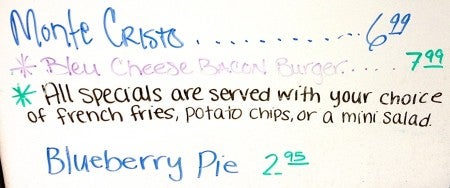 Monte Cristo . . . . . . . . . . . . 6 99
* Bleu Cheese Bacon Burger . . . . . 7 99
* All specials are served with your choice
of french fries, potato chips, or a mini salad.
Blueberry Pie 2 95